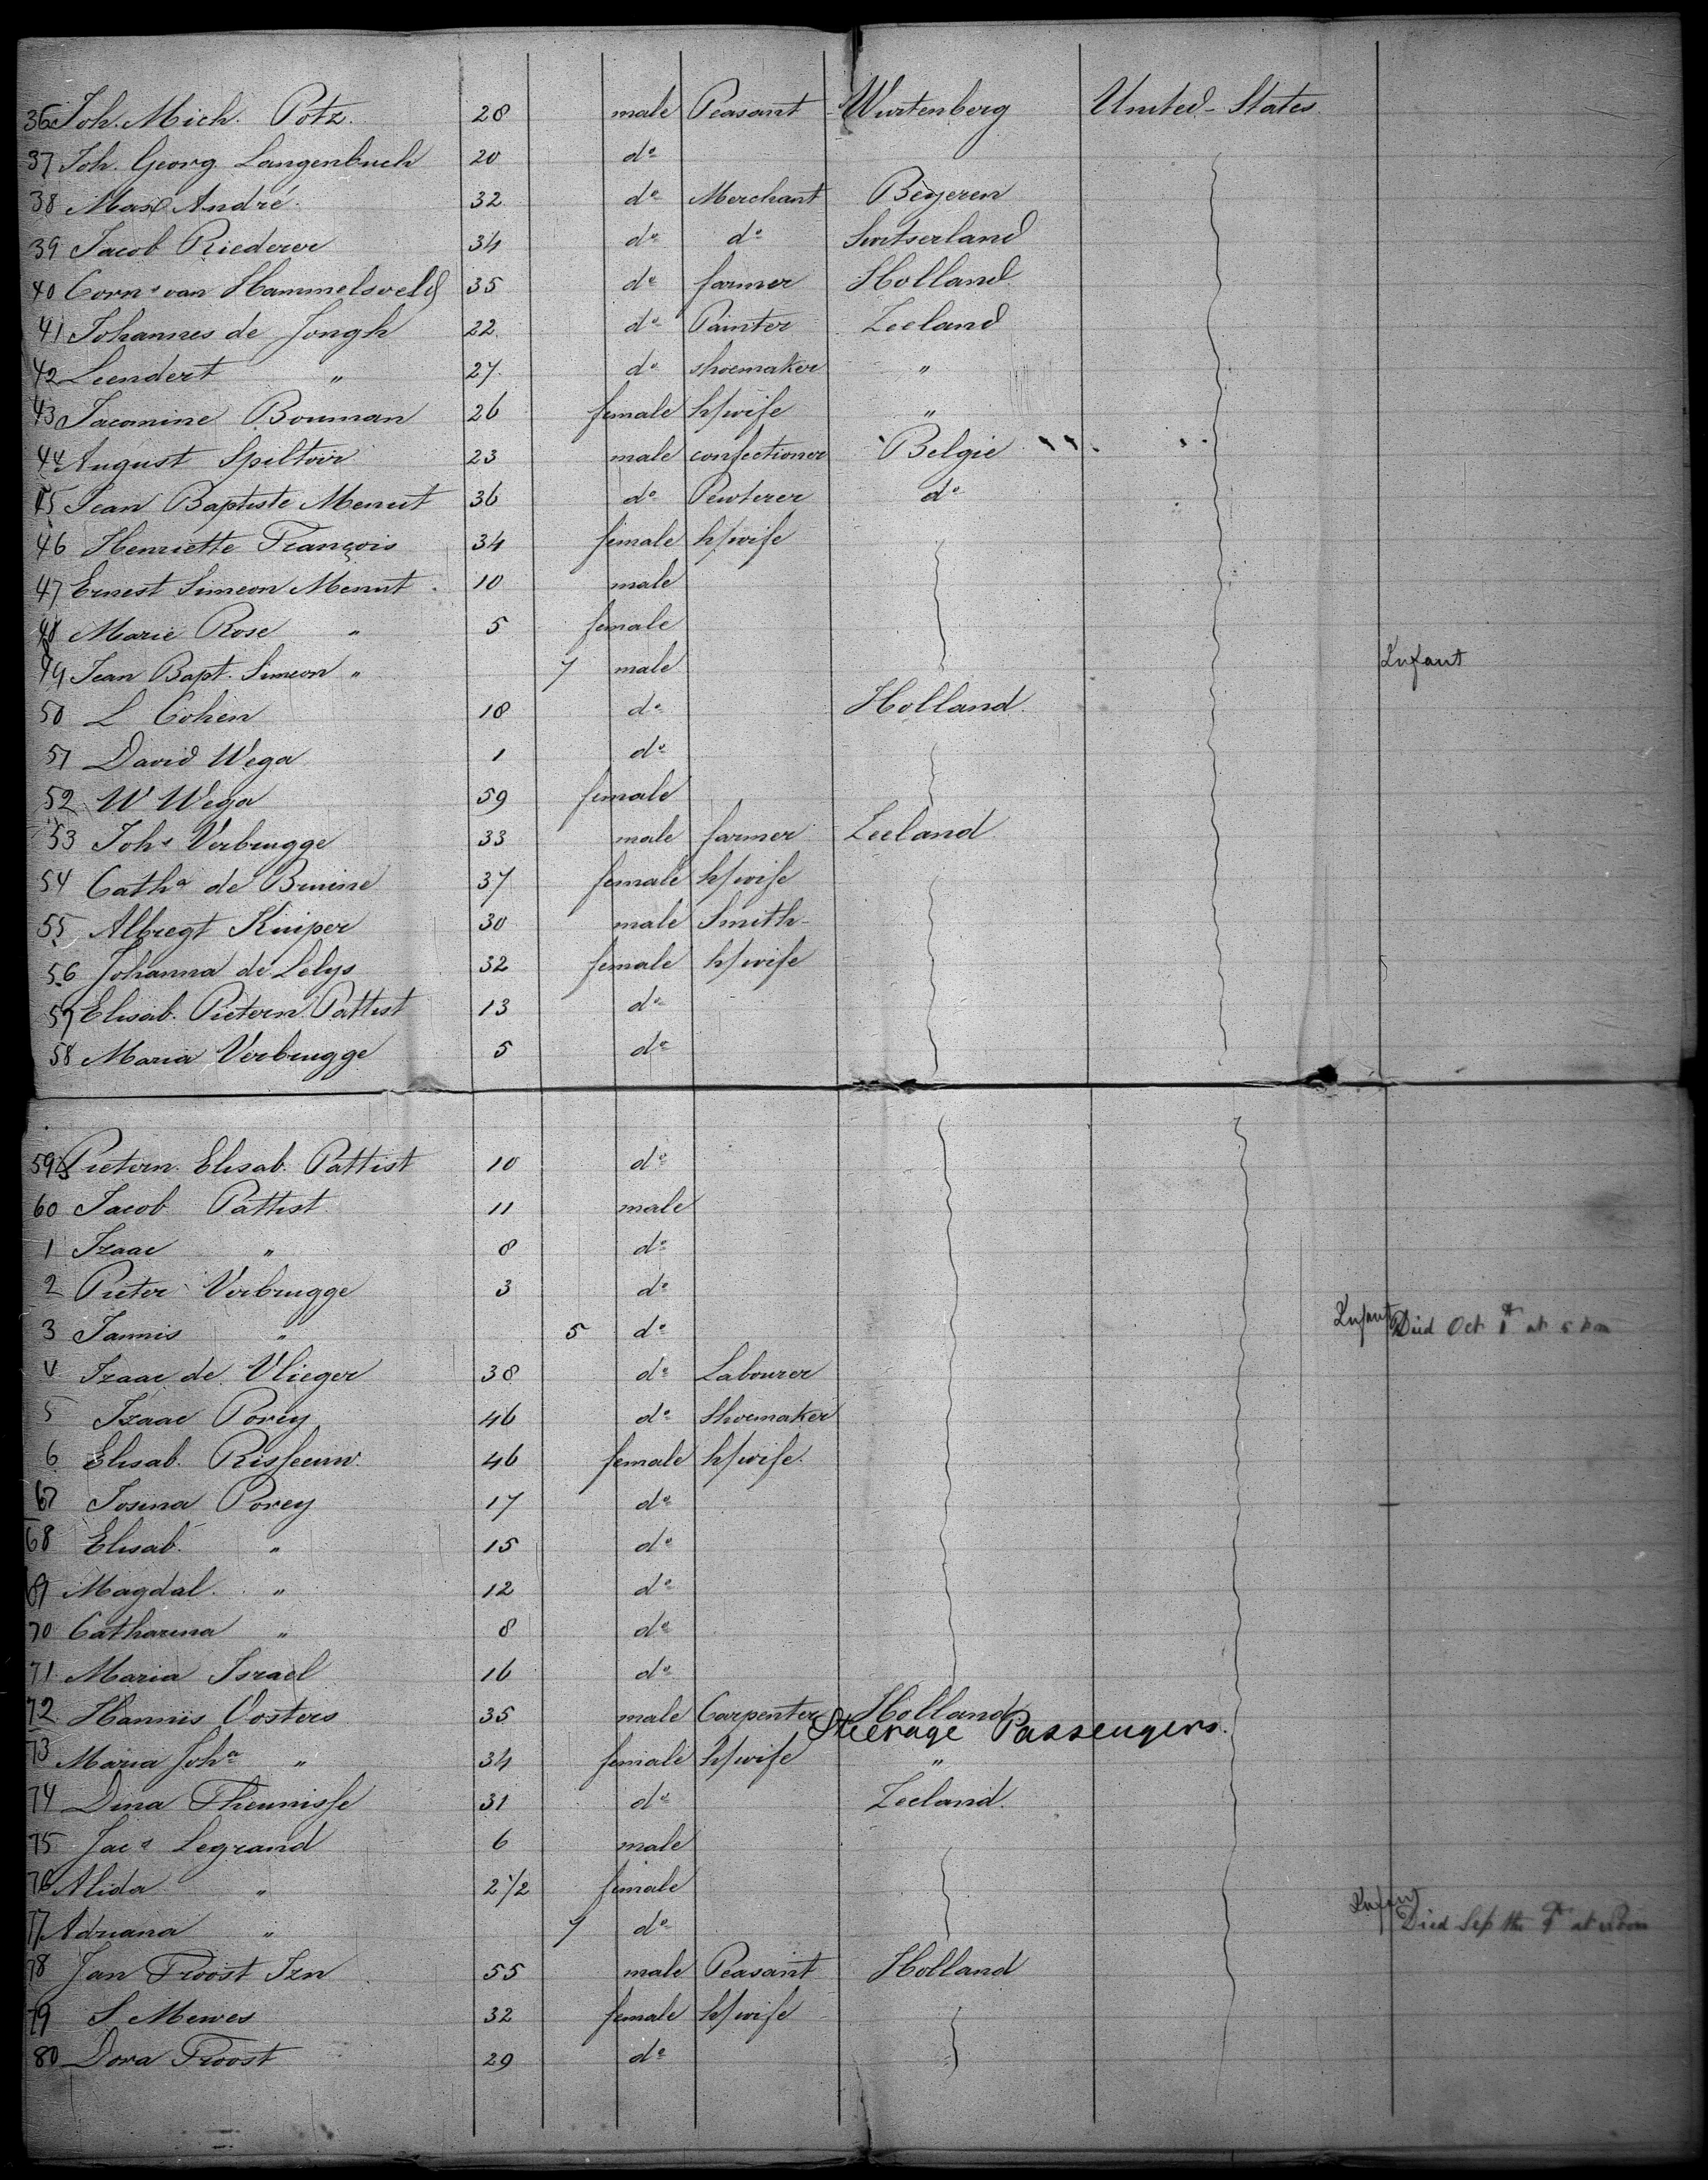 36 Joh. Mich. Potz. 28 male Peasant Wurtenberg United-States
37 Joh. Georg Langenbuch 20 do
38 Max André 32 do Merchant Beyeren
39 Jacob Riederer 34 do do Switserland
40 Corns van Hammelsveld 35 do farmer Holland
41 Johannes de Jongh 22 do Painter Zeeland
42 Leendert " 27 do shoemaker "
43 Jacomine Bouman 26 female h/wife "
44 August Spiltoir 23 male confectioner Belgie
45 Jean Baptiste Menut 36 do Pewterer do
46 Henriette François 34 female h/wife
47 Ernest Simeon Menut 10 male
48 Marie Rose " 5 female
49 Jean Bapt. Simeon " 7 male Infant
50 L Cohen 18 do Holland
51 David Wega 1 do
52 W Wega 59 female
53 Johs Verbrugge 33 male farmer Zeeland
54 Catha de Bruine 37 female h/wife
55 Albregt Kuiper 30 male Smith
56 Johanna de Lelys 32 female h/wife
57 Elisab. Pietern. Pattist 13 do
58 Maria Verbrugge 5 do
59 Pietern. Elisab. Pattist 10 do
60 Jacob Pattist 11 male
1 Izaac " 8 do
2 Pieter Verbrugge 3 do
3 Jannis " 5 do Infant Died Oct 1 at 5 pm
4 Izaac de Vlieger 38 do Labourer
5 Izaac Porey 46 do Shoemaker
6 Elisab. Risseeuw 46 female h/wife
67 Josina Porey 17 do
68 Elisab. " 15 do
69 Magdal. " 12 do
70 Catharina " 8 do
71 Maria Israel 16 do
72 Hannis Oosters 35 male Carpenter Holland
Steerage Passengers.
73 Maria Joha " 34 female h/wife "
74 Dina Theunisse 31 do Zeeland
75 Jacs Legrand 6 male
76 Alida " 2 1/2 female
77 Adriana " 7 do Infant Died Sep the at pm
78 Jan Troost Izn 55 male Peasant Holland
79 S Mewes 32 female h/wife
80 Dora Troost 29 do